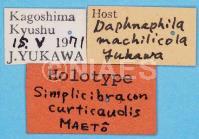 Kagoshima
Kyushu
15. V 1971
J. YUKAWA
Host
Daphnephila
machilicola
Yukawa
Holotype
Simplicibracon
curticaudis
MAETÔ